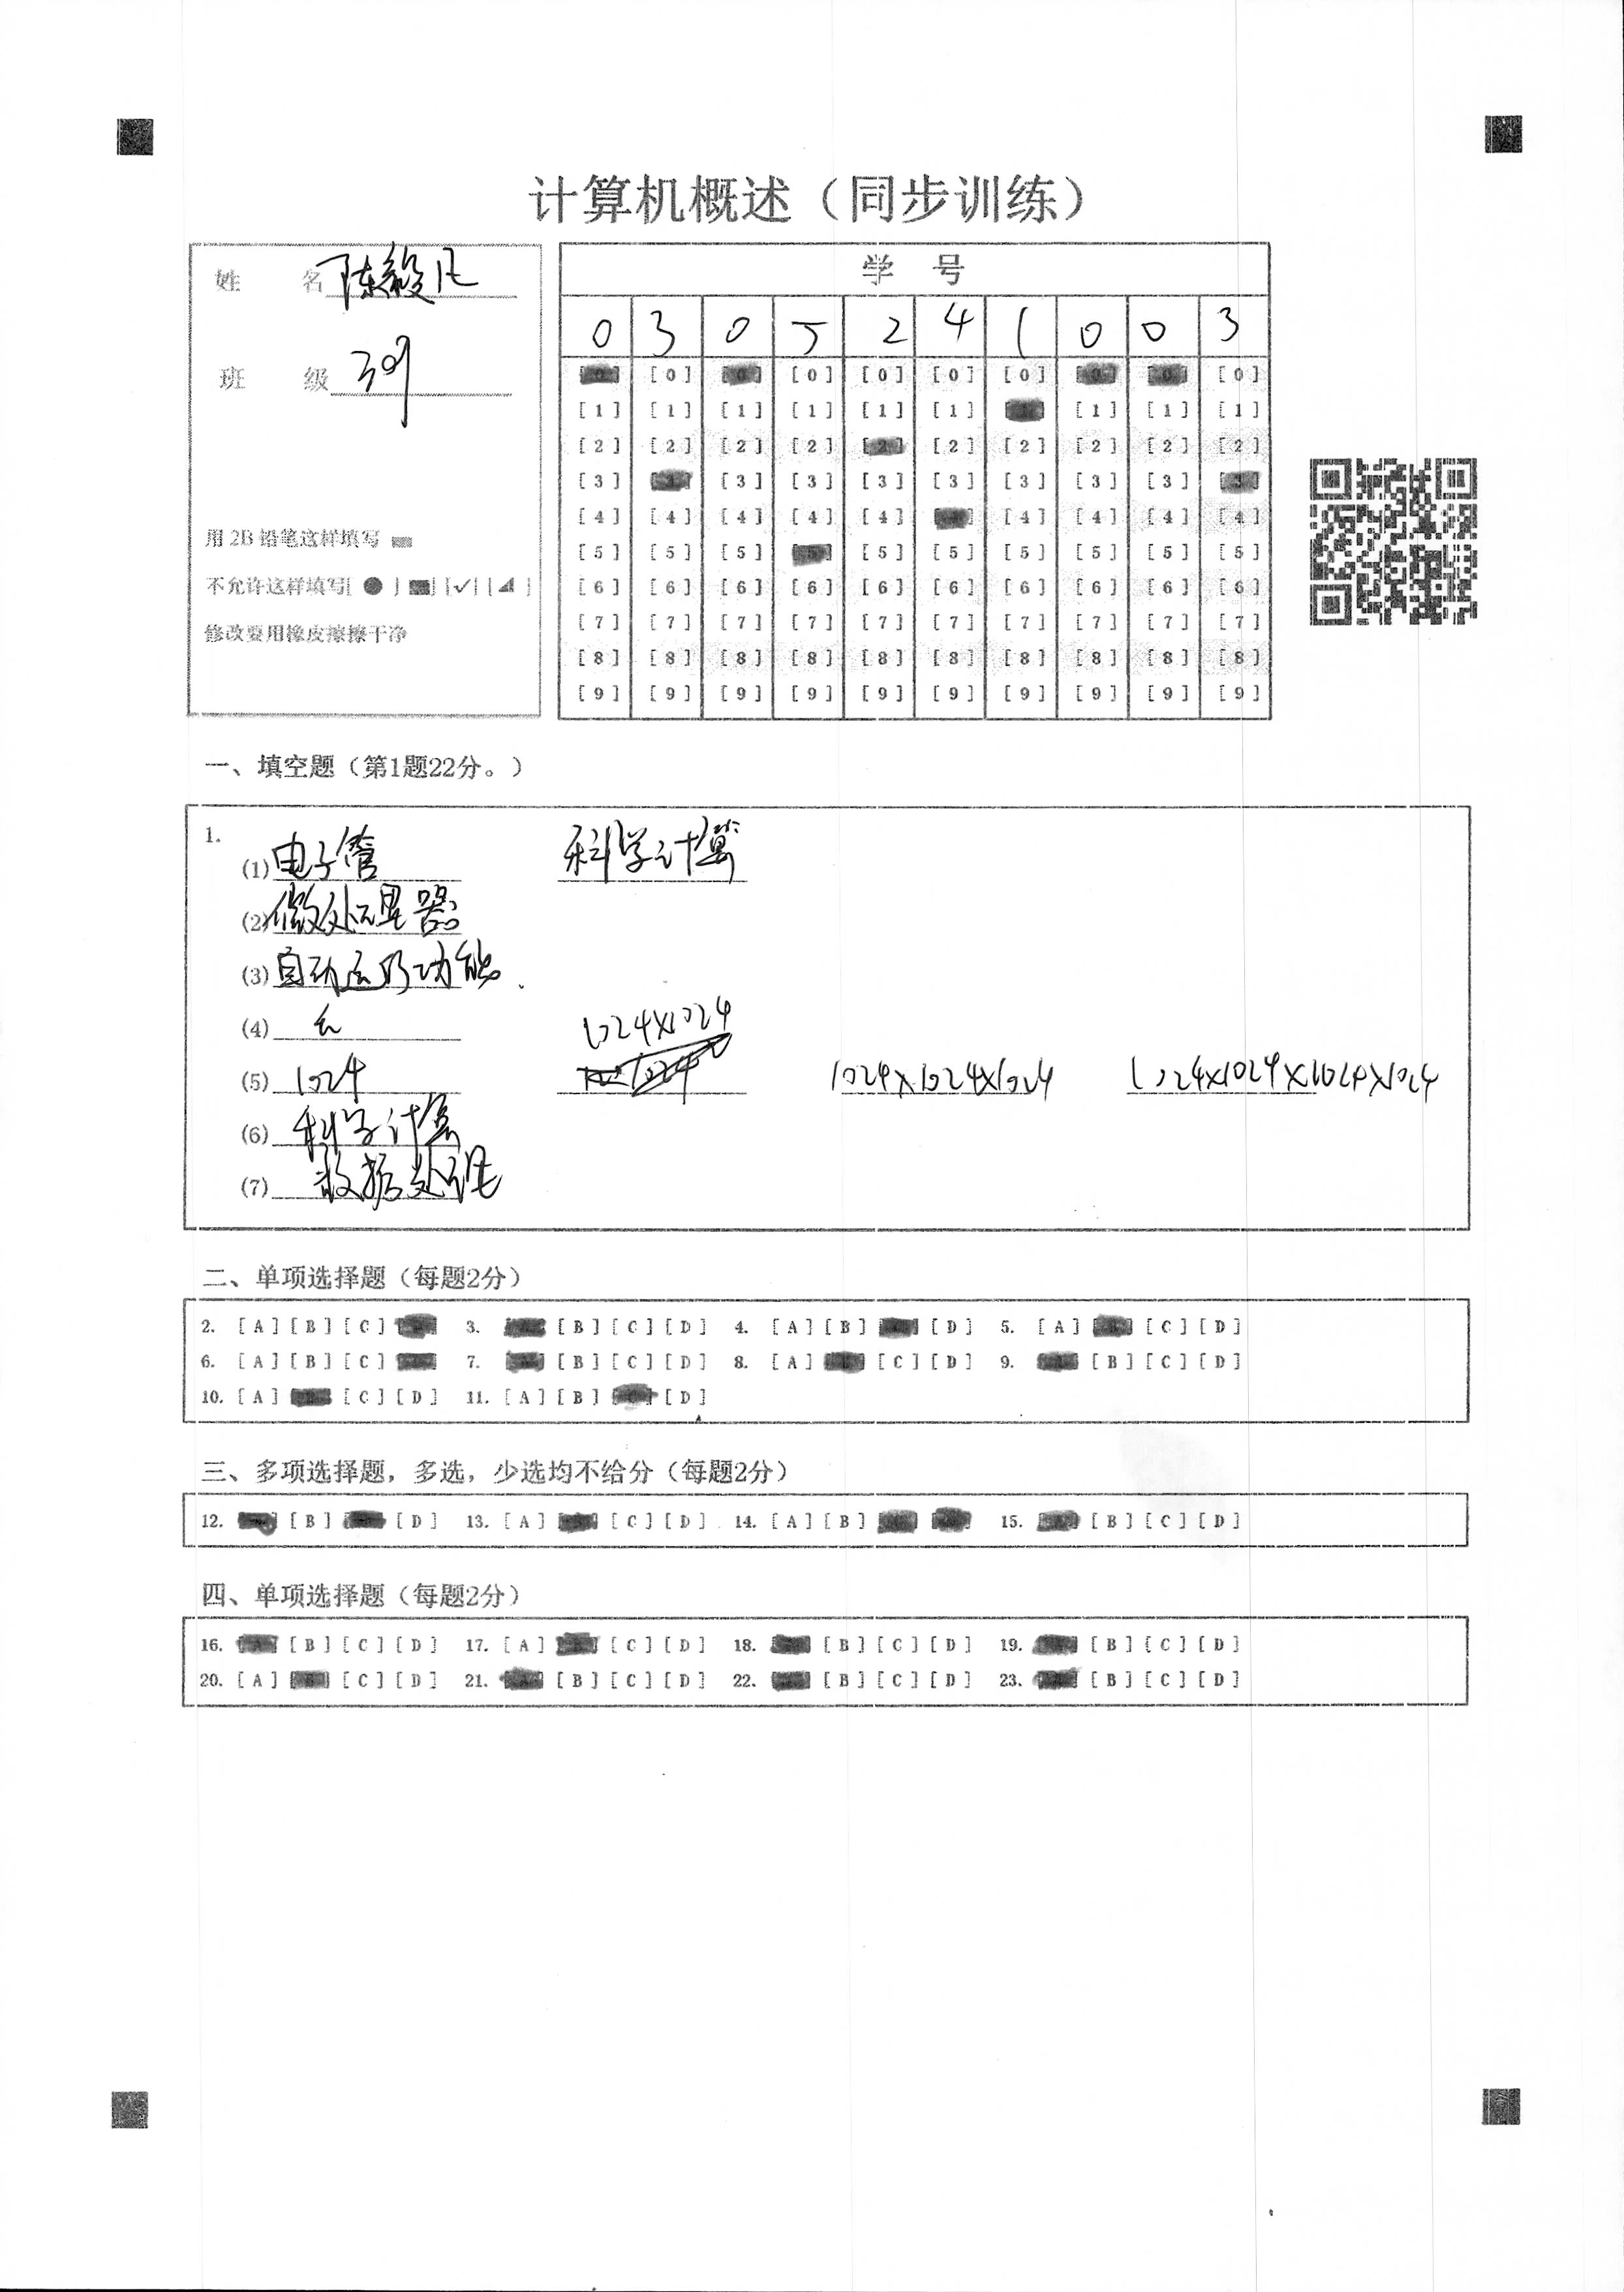 计算机概述（同步训练）
姓 名 陈毅凡
班 级
用 2B 铅笔这样填写
不允许这样填写[ ● ] [■] [✓] [◢ ]
修改要用橡皮擦擦干净
学 号
0 3 0 5 2 4 1 0 0 3
[0] [0] [0] [0] [0] [0] [0] [0] [0] [0]
[1] [1] [1] [1] [1] [1] [1] [1] [1] [1]
[2] [2] [2] [2] [2] [2] [2] [2] [2] [2]
[3] [3] [3] [3] [3] [3] [3] [3] [3] [3]
[4] [4] [4] [4] [4] [4] [4] [4] [4] [4]
[5] [5] [5] [5] [5] [5] [5] [5] [5] [5]
[6] [6] [6] [6] [6] [6] [6] [6] [6] [6]
[7] [7] [7] [7] [7] [7] [7] [7] [7] [7]
[8] [8] [8] [8] [8] [8] [8] [8] [8] [8]
[9] [9] [9] [9] [9] [9] [9] [9] [9] [9]
一、填空题（第1题22分。）
1.
(1) 电子管 科学计算
(2) 微处理器
(3) 自动运行功能.
(4)
(5) 1024 1024×1024 1024×1024×1024 1024×1024×1024×1024
(6) 科学计算
(7) 数据处理
二、单项选择题（每题2分）
2. [A] [B] [C] 3. [B] [C] [D] 4. [A] [B] [D] 5. [A] [C] [D]
6. [A] [B] [C] 7. [B] [C] [D] 8. [A] [C] [D] 9. [B] [C] [D]
10. [A] [C] [D] 11. [A] [B] [D]
三、多项选择题，多选，少选均不给分（每题2分）
12. [B] [D] 13. [A] [C] [D] 14. [A] [B] 15. [B] [C] [D]
四、单项选择题（每题2分）
16. [B] [C] [D] 17. [A] [C] [D] 18. [B] [C] [D] 19. [B] [C] [D]
20. [A] [C] [D] 21. [B] [C] [D] 22. [B] [C] [D] 23. [B] [C] [D]